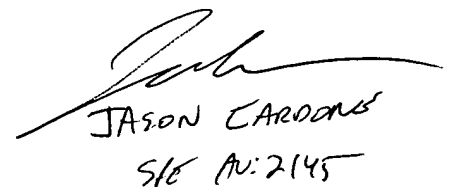 JASON CARDONE
S/E AU: 2145